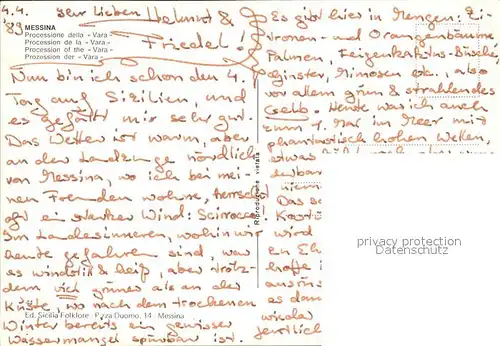 4.4.
'89
Ihr lieben Helmut &
Friedel!
MESSINA
Processione della « Vara »
Procession de la « Vara »
Procession of the « Vara »
Prozession der « Vara »
Nun bin ich schon den 4.
Tag auf Sizilien, und
es gefällt mir sehr gut.
Das Wetter ist warm, aber
an der Landzunge nördlich
von Messina, wo ich bei mei-
nen Freunden wohne, herrscht
oft ein starker Wind: Scirocco.
Im Landesinneren, wohin wir
heute gefahren sind, war
es windstill & heiß, aber trotz-
dem viel grüner als an der
Küste, wo nach dem trockenen
Winter bereits ein gewisser
Wassermangel spürbar ist.
Ed. Sicilia Folklore P.zza Duomo, 14 Messina
Riproduzione vietata
Es gibt hier in Mengen: Zi-
tronen- und Orangenbäume
Palmen, Feigenkaktus-Büsche,
ginster, Mimosen etc., also
vor allem grün & strahlendes
Gelb. Heute war ich auch
zum 1. Mal im Meer mit
phantastisch hohen Wellen,
etwas
denbar
niem
Das se
wird
en Eh
hoffe i
as dam
wieder
privacy protection
Datenschutz